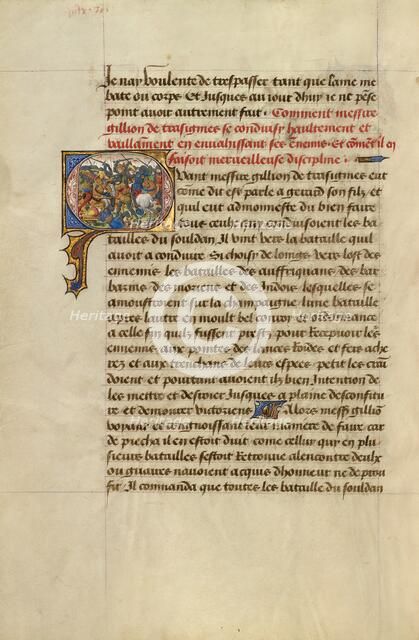 Je nay voulente de trespasser tant que lame me
bate ou corps Et Jusques au iour dhuy ie nt pẽse
point auoir autrement fait · Comment messire
gillion de trasignies se conduisy haultement et
vaillãment en enuahissant ses ẽnemis · Et cõment il en
faisoit merueilleuse discipline ·
Quant messire gillion de trasignies eut
cõme dit est parle a gerard son filz et
quil eut admoneste du bien faire
tous ceulx quy conduisoient les ba
tailles du souldan Il vint vers la bataille quil
auoit a conduire Sy choisy de loingz vers lost des
ennemis les batailles des auffriquans des bar
barins des moriens et des Indois lesquelles se
amoustroient sur la champaigne lune bataille
apres lautre en moult bel conroy et ordonnance
a celle fin quilz fussent prestz pour Recepuoir les
ennemis aux pointes des lances Roides et fers ache
rez et aux trenchans de leurs espees petit les crẽm
doient et pourtant auoient ilz bien Intention de
les mettre et destruire Jusques a plaine desconfitu
re et demourer victoriens Allors messe gilliõ
voyant et congnoissant leur maniere de faire car
de piecha il en estoit duit comme celluy quy en plu
sieurs batailles sestoit Retrouue alencontre deulx
ou gaires nauoient acquis dhonneur ne de prou
fit Il commanda que toutes les bataille du souldan